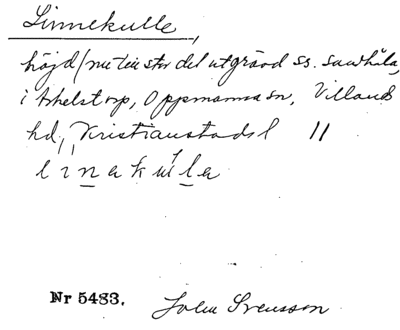 Linnekulle,
höjd/nu till stor del utgrävd ss. sandhåla,
i Arkelstorp, Oppmanna sn, Villands
hd, Kristianstads l
linakulla
Nr 5483. John Svensson